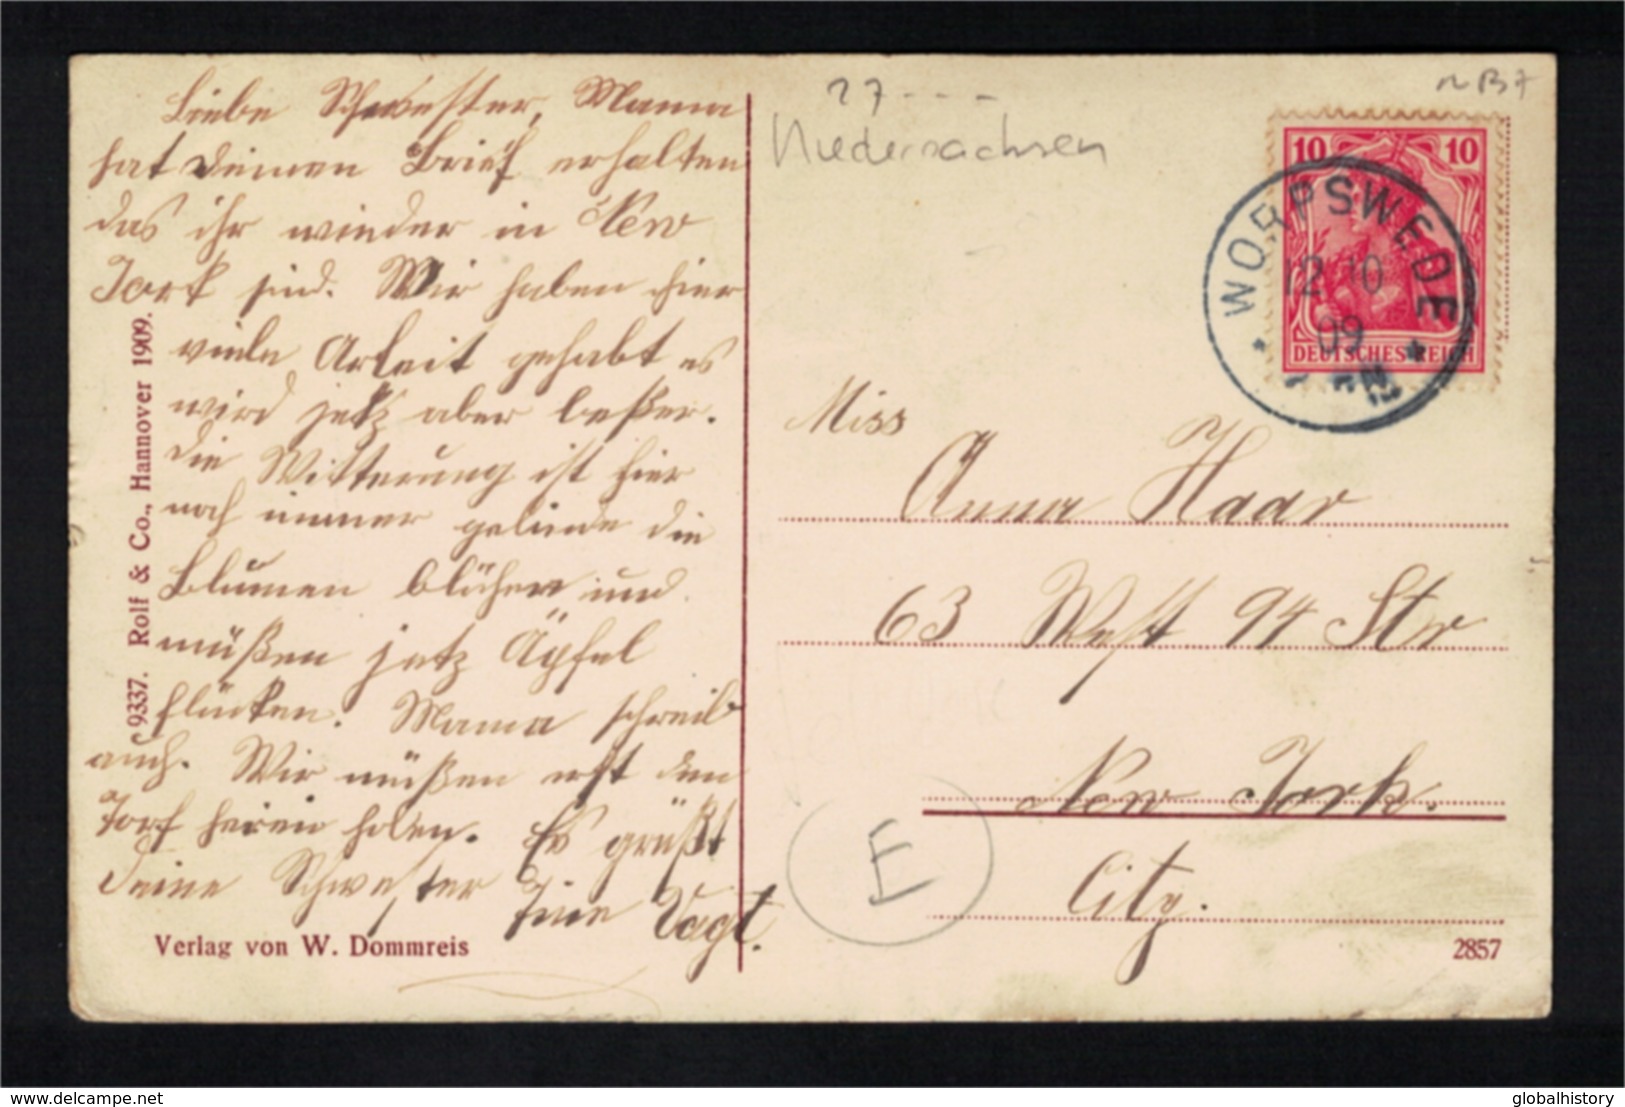 Liebe Schwester, Mama
hat deinen Brief erhalten
das ihr wieder in New
York sind. Wir haben hier
viele Arbeit gehabt es
wird jetz aber beßer.
die Witterung ist hier
noch immer gelinde die
Blumen blühen und
müßen jetz Äpfel
flücken. Mama schreib
auch. Wir müßen erst den
Torf herein holen. Es grüßt
deine Schwester Tine Vagt.
Verlag von W. Dommreis
9337. Rolf & Co., Hannover 1909.
27 - - -
Niedersachsen
10 10
DEUTSCHES REICH
WORPSWEDE
12 10
09
Miss
Anna Haar
63 West 94 Str
New York.
City.
E
2857
www.delcampe.net
globalhistory